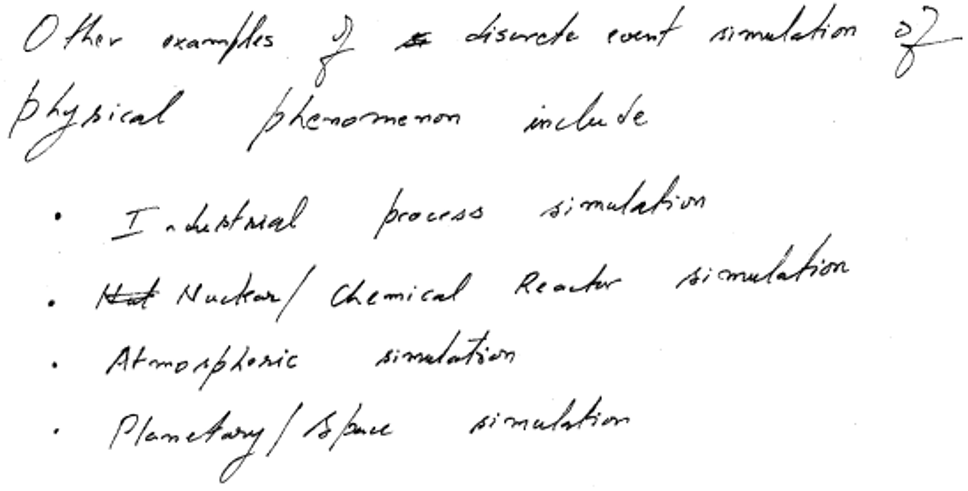 Other examples of discrete event simulation of
physical phenomenon include
• Industrial process simulation
• Nuclear/Chemical Reactor simulation
• Atmospheric simulation
• Planetary/Space simulation